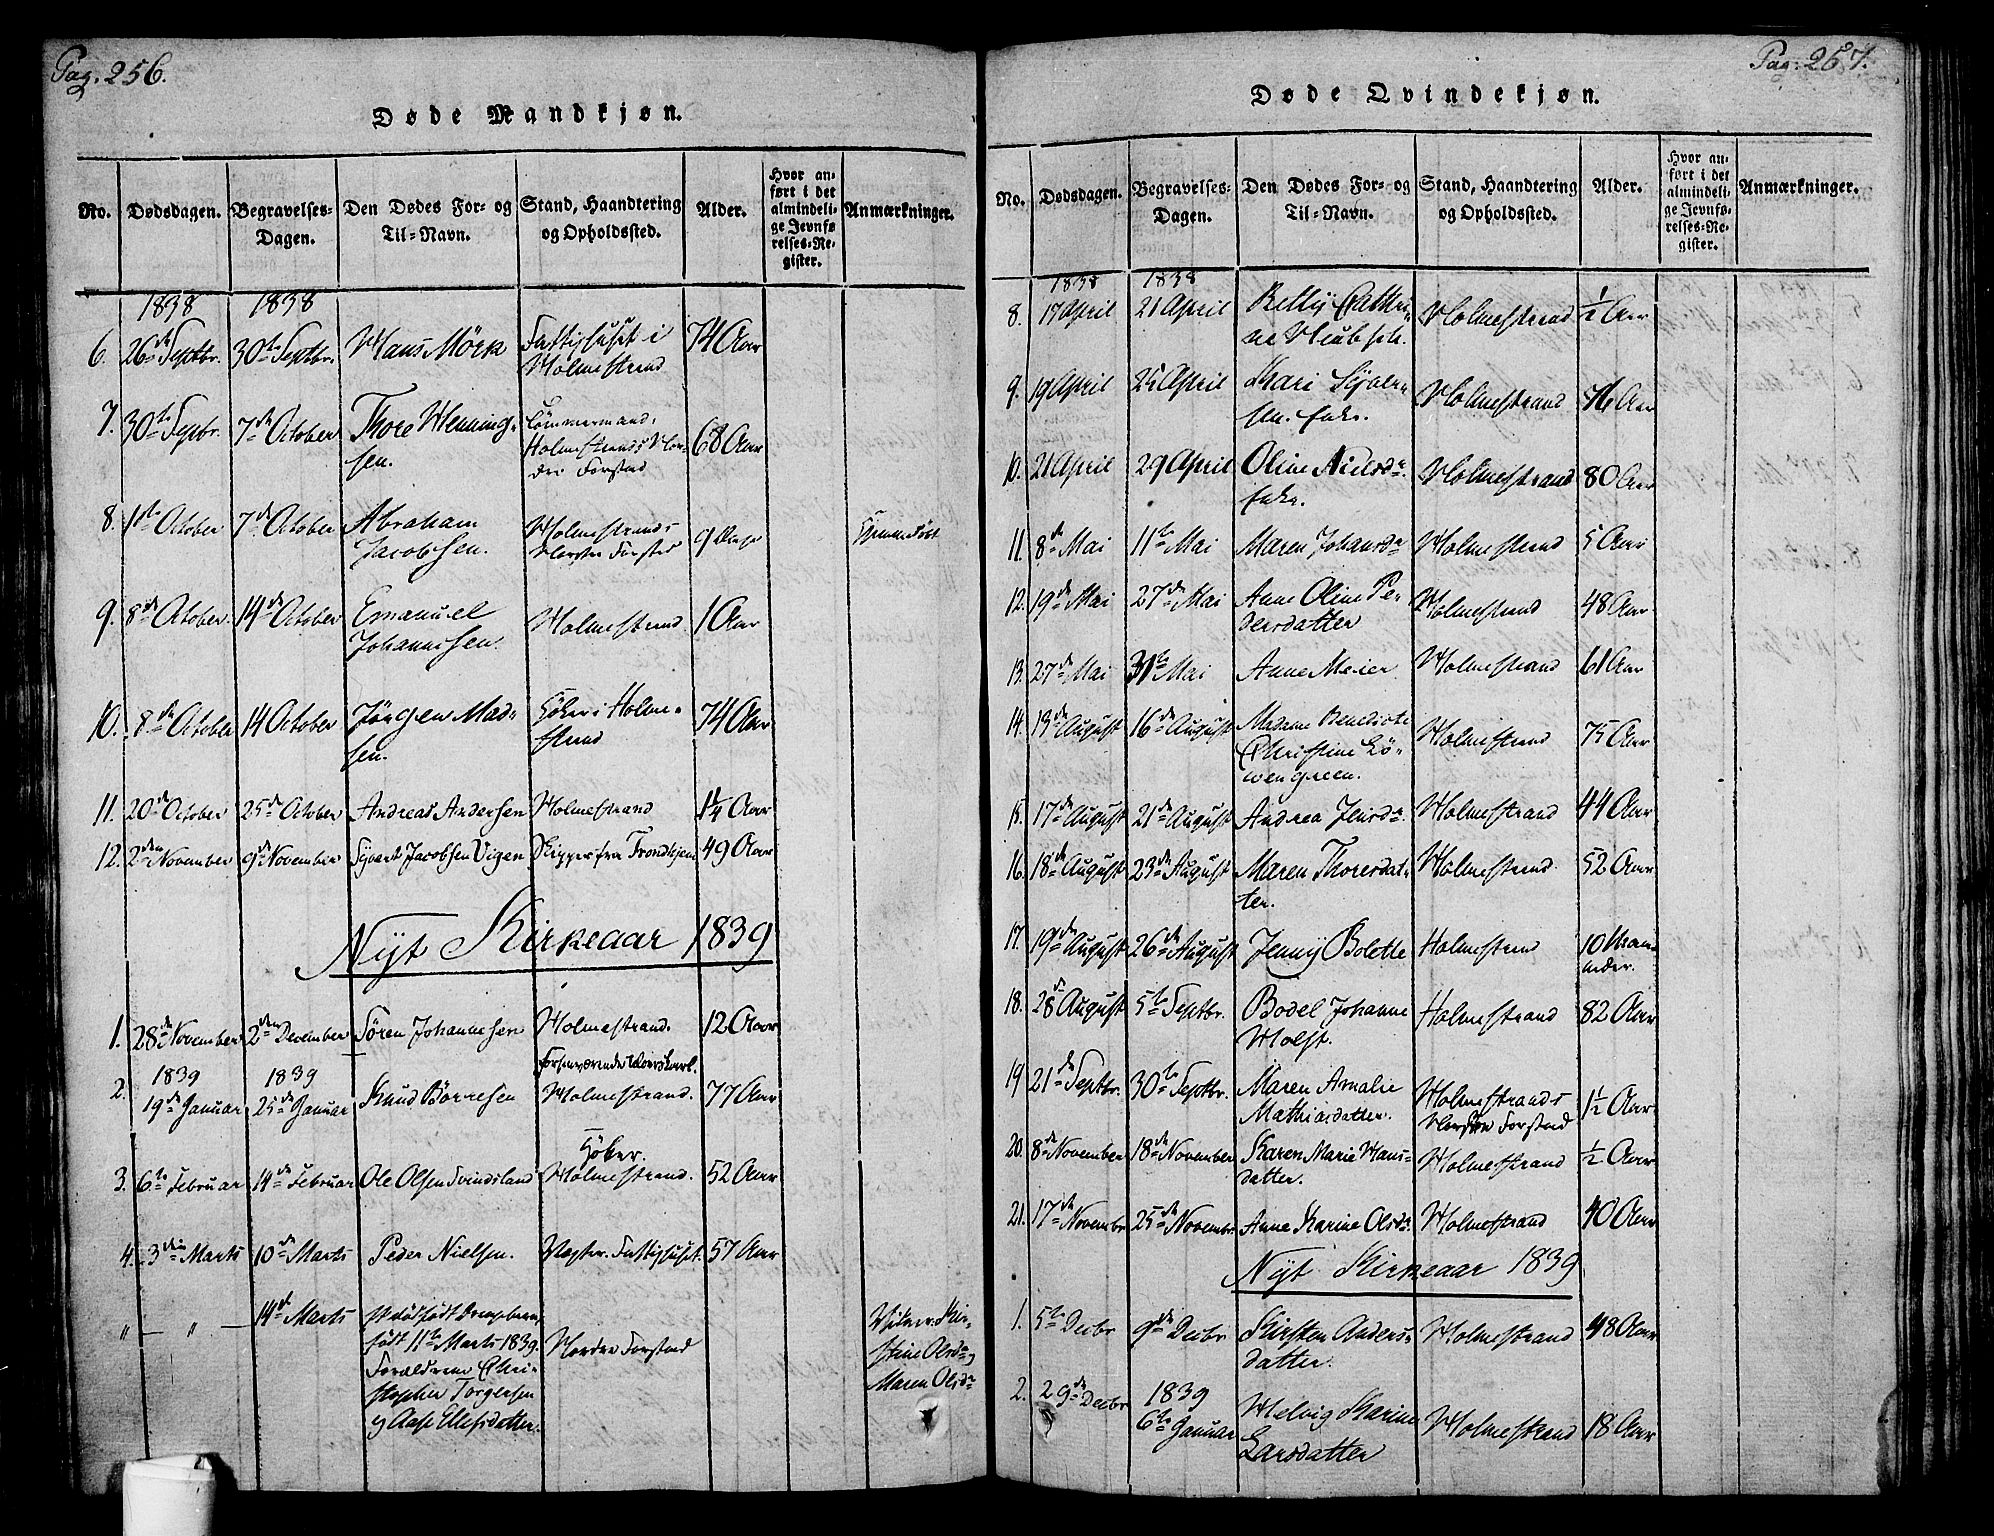 Pag. 256.
Døde Mandkjøn.
No. Dødsdagen. Begravelses-Dagen. Den Dødes For- og Til-Navn. Stand, Haandtering og Opholdssted. Alder. Hvor anført i det almindelige Jevnførelses-Register. Anmærkninger.
1838 1838
6. 26de Septbr. 30te Septbr. Hans Mörk Fattighuset i
Holmestrand 74 Aar
7. 30te Sepbr. 7de October Thore Henning-
sen. Tömmermand,
Holmestrands Nor-
dre Forstad 68 Aar
8. 1ste October 7de October Abraham
Jacobsen. Holmestrands
Nordre Forstad 9 Dage Hjemmedöbt
9. 8de October. 14de October Emanuel
Johannesen. Holmestrand. 1 Aar
10. 8de October 14 October Jörgen Mad-
sen. Höker i Holme-
strand 74 Aar
11. 20de October 25de October Andreas Andersen Holmestrand 1 1/4 Aar
12. 2den November 9de November Syvert Jacobsen Vigen Skipper fra Trondhjem 49 Aar
Nyt Kirkeaar 1839
1. 28de November 2den December Sören Johannesen Holmestrand. 12 Aar
1839 1839
2. 19de Januar 25de Januar Knud Börresen Forhenværende
Holmestrand. 77 Aar
3. 6te Februar 14de Februar Ole Olsen Svindsland Höker.
Holmestrand. 52 Aar
4. 3die Marts 10de Marts Peder Nielsen. Vægter. Fattighuset. 57 Aar
" — " — 14de Marts Et dödfödt Drengebarn
födt 11te Marts 1839.
Forældrene Chri-
stopher Torgersen
og Aase Ellefsdatter. Nordre Forstad Vidner: Kir-
stine Olsdr og
Maren Olsdr
Pag. 257.
Døde Qvindekjøn.
No. Dødsdagen. Begravelses-Dagen. Den Dødes For- og Til-Navn. Stand, Haandtering og Opholdssted. Alder. Hvor anført i det almindelige Jevnførelses-Register. Anmærkninger.
1838 1838
8. 17 April 21 April Betty Cathri-
ne Holmestrand 1/2 Aar
9. 19 April 25 April Kari Syver-
sen. Enke. Holmestrand 76 Aar
10. 21 April 29 April Oline Nielsdr.
Enke. Holmestrand 80 Aar
11. 8de Mai 11te Mai Maren Johansdr Holmestrand 5 Aar
12. 19de Mai 27de Mai Anne Oline Pe-
dersdatter Holmestrand 48 Aar
13. 27de Mai 31te Mai Anne Meier Holmestrand 61 Aar
14. 13de August 16de August Madame Benedicte
Christine Lö-
wengreen. Holmestrand 75 Aar
15. 17de August 21de August Andrea Jensdr. Holmestrand 44 Aar
16. 18de August 23de August Maren Thoresdat-
ter. Holmestrand 52 Aar
17. 19de August 26de August Jenny Bolette Holmestrand 10 Maa-
neder.
18. 28de August 5te Septbr. Bodel Johanne
Holst. Holmestrand 82 Aar
19 21de Septbr. 30te Septbr. Maren Amalie
Mathiasdatter. Holmestrands
Nordre Forstad 1 1/2 Aar
20. 8de November 18de November Karen Marie Hans-
datter. Holmestrand 1/2 Aar
21. 17de Novembr 25de Novembr. Anne Karine Olsdr. Holmestrand 40 Aar
Nyt Kirkeaar 1839
1. 5te Decbr 9de Decbr Kirsten Anders-
datter. Holmestrand 48 Aar
2. 29de Decbr 1839
6te Januar Helvig Karine
Larsdatter Holmestrand 18 Aar